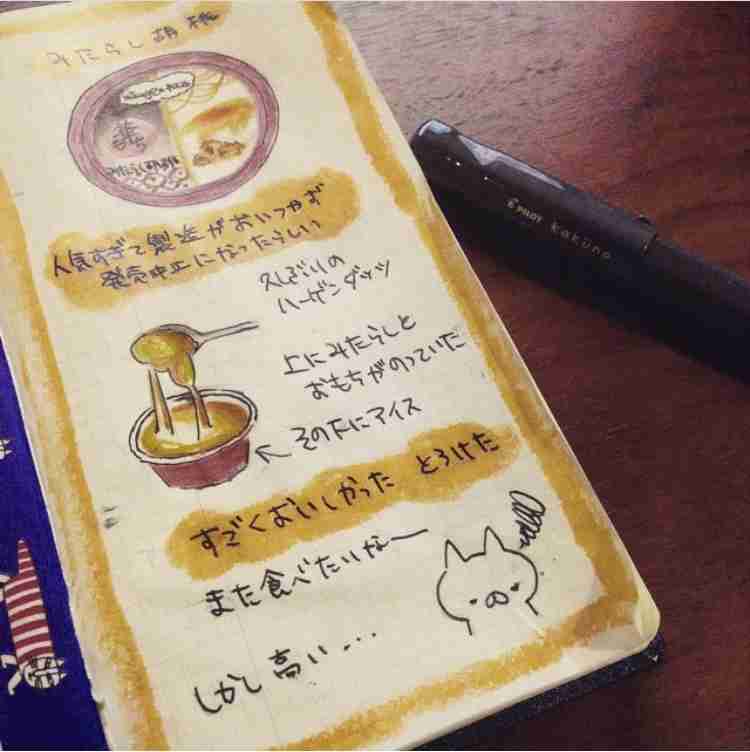 みたらし胡桃
人気すぎて製造がおいつかず
発売中止になったらしい
久しぶりの
ハーゲンダッツ
上にみたらしと
おもちがのっていた
←その下にアイス
すごくおいしかった とろけた
また食べたいなー
しかし高い...
PILOT kakuno